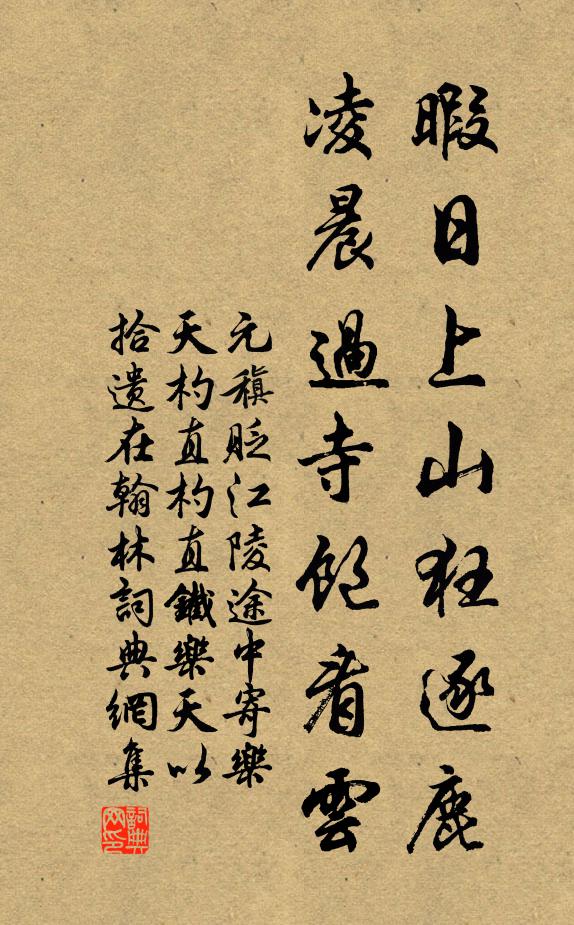 暇日上山狂逐鹿
凌晨過寺飽看雲
元稹貶江陵途中寄樂
天杓直杓直鐵樂天以
拾遺在翰林詞典網集
詞典网印